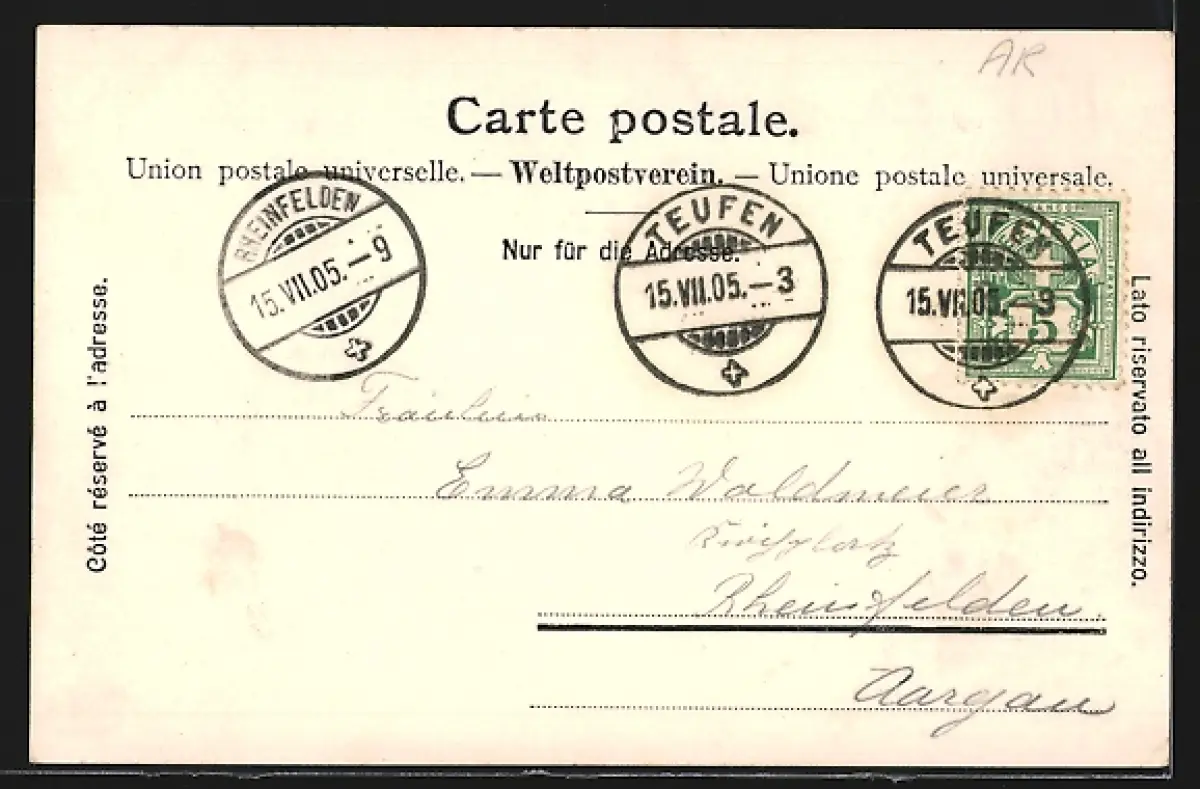 AR
Carte postale.
Union postale universelle. — Weltpostverein. — Unione postale universale.
Nur für die Adresse.
RHEINFELDEN
15.VII.05.–9
TEUFEN
15.VII.05.–3
TEUFEN
15.VII.05.–3
5
Côté réservé à l'adresse.
Lato riservato all indirizzo.
Fräulein
Emma Waldmeier
Rheinfelden.
Aargau